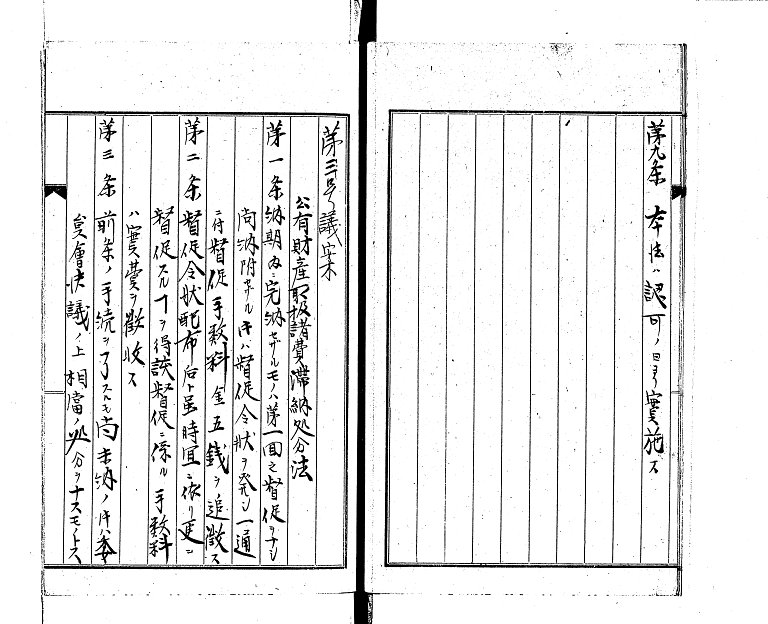 第九条 本法ハ認可ノ日ヨリ實施ス
第三号議案
公有財産取扱諸費滞納処分法
第一条 納期内ニ完納セザルモノハ第一回之督促ヲナシ
尚納附セザルトキハ督促令状ヲ発シ一通
ニ付督促手数料金五銭ヲ追徴ス
第二条 督促令状配布后ト虽時宜ニ依リ更ニ
督促スルヿヲ得該督促ニ係ル手数料
ハ實費ヲ徴收ス
第三条 前条ノ手続ヲ了スルモ尚未納ノトキハ委
員會决議ノ上相當ノ処分ヲナスモノトス